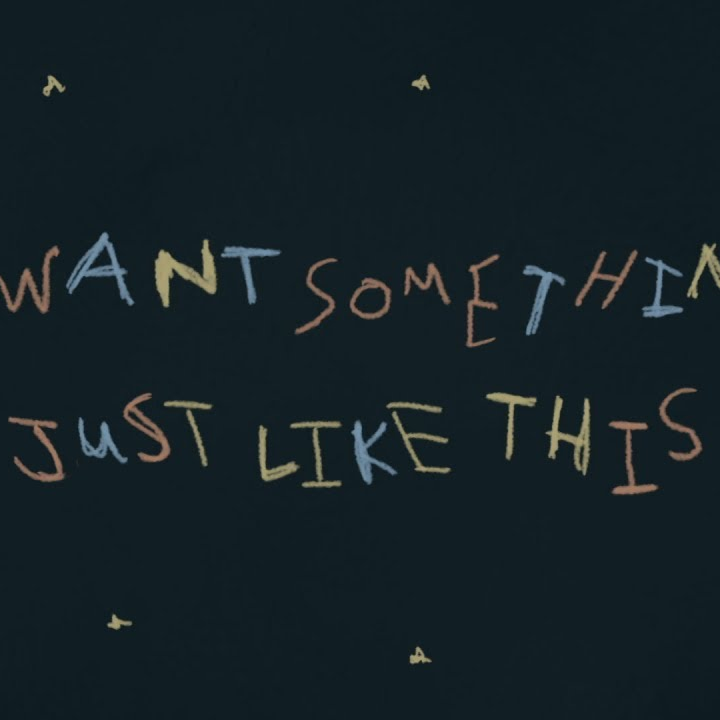 WANT SOMETHIN
JUST LIKE THIS